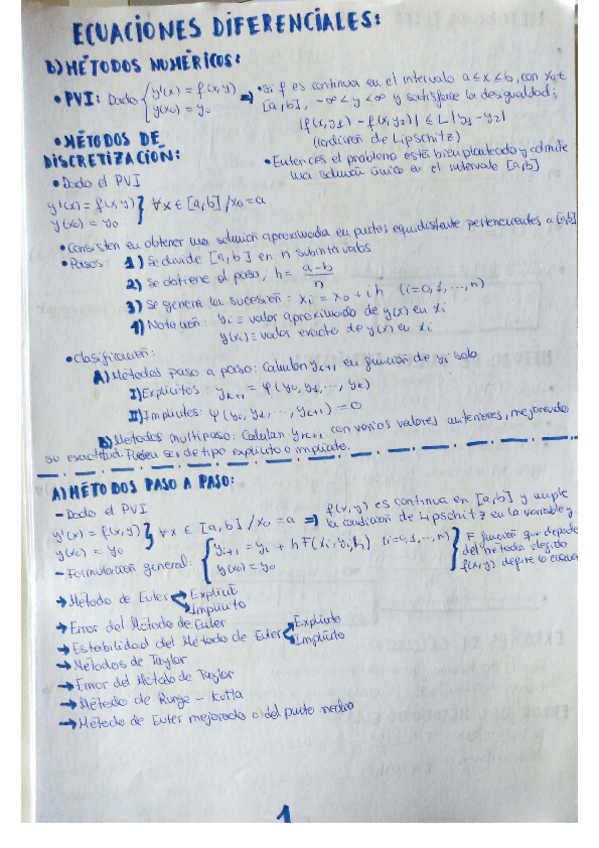 ECUACIONES DIFERENCIALES:
b) MÉTODOS NUMÉRICOS:
• PVI: Dado { y'(x) = f(x,y) y(x0) = y0 ⇒ • Si f es continua en el intervalo a≤x≤b, con x0 ∈ [a,b], -∞<y<∞ y satisface la desigualdad;
|f(x,y1) - f(x,y2)| ≤ L |y1-y2|
(condición de Lipschitz)
• Entonces el problema está bien planteado y admite una solución único en el intervalo [a,b]
• MÉTODOS DE DISCRETIZACIÓN:
• Dado el PVI
y'(x) = f(x,y)
y(x0) = y0 } ∀x ∈ [a,b] / x0 = a
• Consisten en obtener una solución aproximada en puntos equidistante pertenecientes a [a,b]
• Pasos: 1) Se divide [a,b] en n subintervalos
2) Se obtiene el paso, h = a-b / n
3) Se genera la sucesión: xi = x0 + ih (i=0,1,...,n)
4) Notación: yi ≡ valor aproximado de y(x) en xi
y(xi) ≡ valor exacto de y(x) en xi
• Clasificación:
A) Métodos paso a paso: Calculan yk+1 en función de yi solo
I) Explícitos: yk+1 = φ(y0, y1, ..., yk)
II) Implícitos: φ(y0, y1, ..., yk+1) = 0
B) Métodos multipaso: Calculan yk+1 con varios valores anteriores, mejorando
su exactitud. Pueden ser de tipo explícito o implícito.
A) MÉTODOS PASO A PASO:
- Dado el PVI
y'(x) = f(x,y)
y(x0) = y0 } ∀x ∈ [a,b] / x0 = a ⇒ f(x,y) es continua en [a,b] y cumple la condición de Lipschitz en la variable y.
- Formulación general: { yi+1 = yi + h F(xi, yi, h) (i=0,1,...,n) y(x0) = y0 } F función que depende del método elegido f(x,y) define la
→ Método de Euler Explícit Implícito
→ Error del Método de Euler
→ Estabilidad del Método de Euler Explícito Implícito
→ Métodos de Taylor
→ Error del Método de Taylor
→ Método de Runge - Kutta
→ Método de Euler mejorado o del punto medio
1